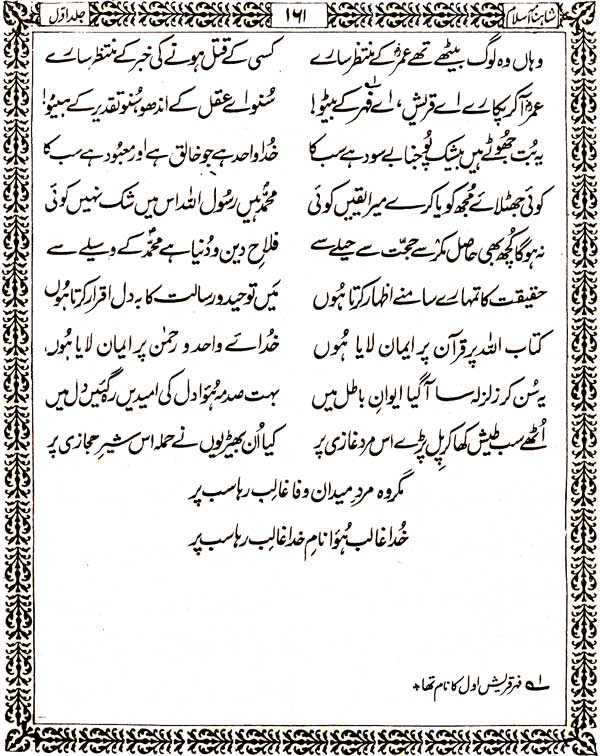 شاہنامۂ اسلام ۱۶۱ جلد اوّل
وہاں وہ لوگ بیٹھے تھے عمرؓ کے منتظر سارے کسی کے قتل ہونے کی خبر کے منتظر سارے
عمرؓ آ کر پکارے اے قریش، اے فہرؔ کے بیٹو! سُنو اے عقل کے اندھو سُنو تقدیر کے ہیٹو!
یہ بُت جھُوٹے ہیں بیشک پُوجنا بے سود ہے سب کا خُدا واحد ہے جو خالق ہے اور معبود ہے سب کا
کوئی جھٹلائے مُجھ کو یا کرے میرا یقیں کوئی محمدؐ ہیں رسُول اللہ اس میں شک نہیں کوئی
نہ ہوگا کُچھ بھی حاصل مکر سے حجت سے حیلے سے فلاحِ دین و دُنیا ہے محمدؐ کے وسیلے سے
حقیقت کا تمہارے سامنے اظہار کرتا ہُوں مَیں توحید و رسالت کا بہ دل اقرار کرتا ہُوں
کتاب اللہ پر قرآن پر ایمان لایا ہُوں خُدائے واحد و رحمٰن پر ایمان لایا ہُوں
یہ سُن کر زلزلہ سا آ گیا ایوانِ باطل میں بہت صدمہ ہُؤا دل کی امیدیں رہ گئیں دل میں
اُٹھے سب طیش کھا کر پِل پڑے اس مردِ غازی پر کیا اُن بھیڑیوں نے حملہ اس شیرِ حجازی پر
مگر وہ مردِ میدانِ وفا غالب رہا سب پر
خُدا غالب ہُؤا نامِ خدا غالب رہا سب پر
؎۱ فہر قریش اول کا نام تھا